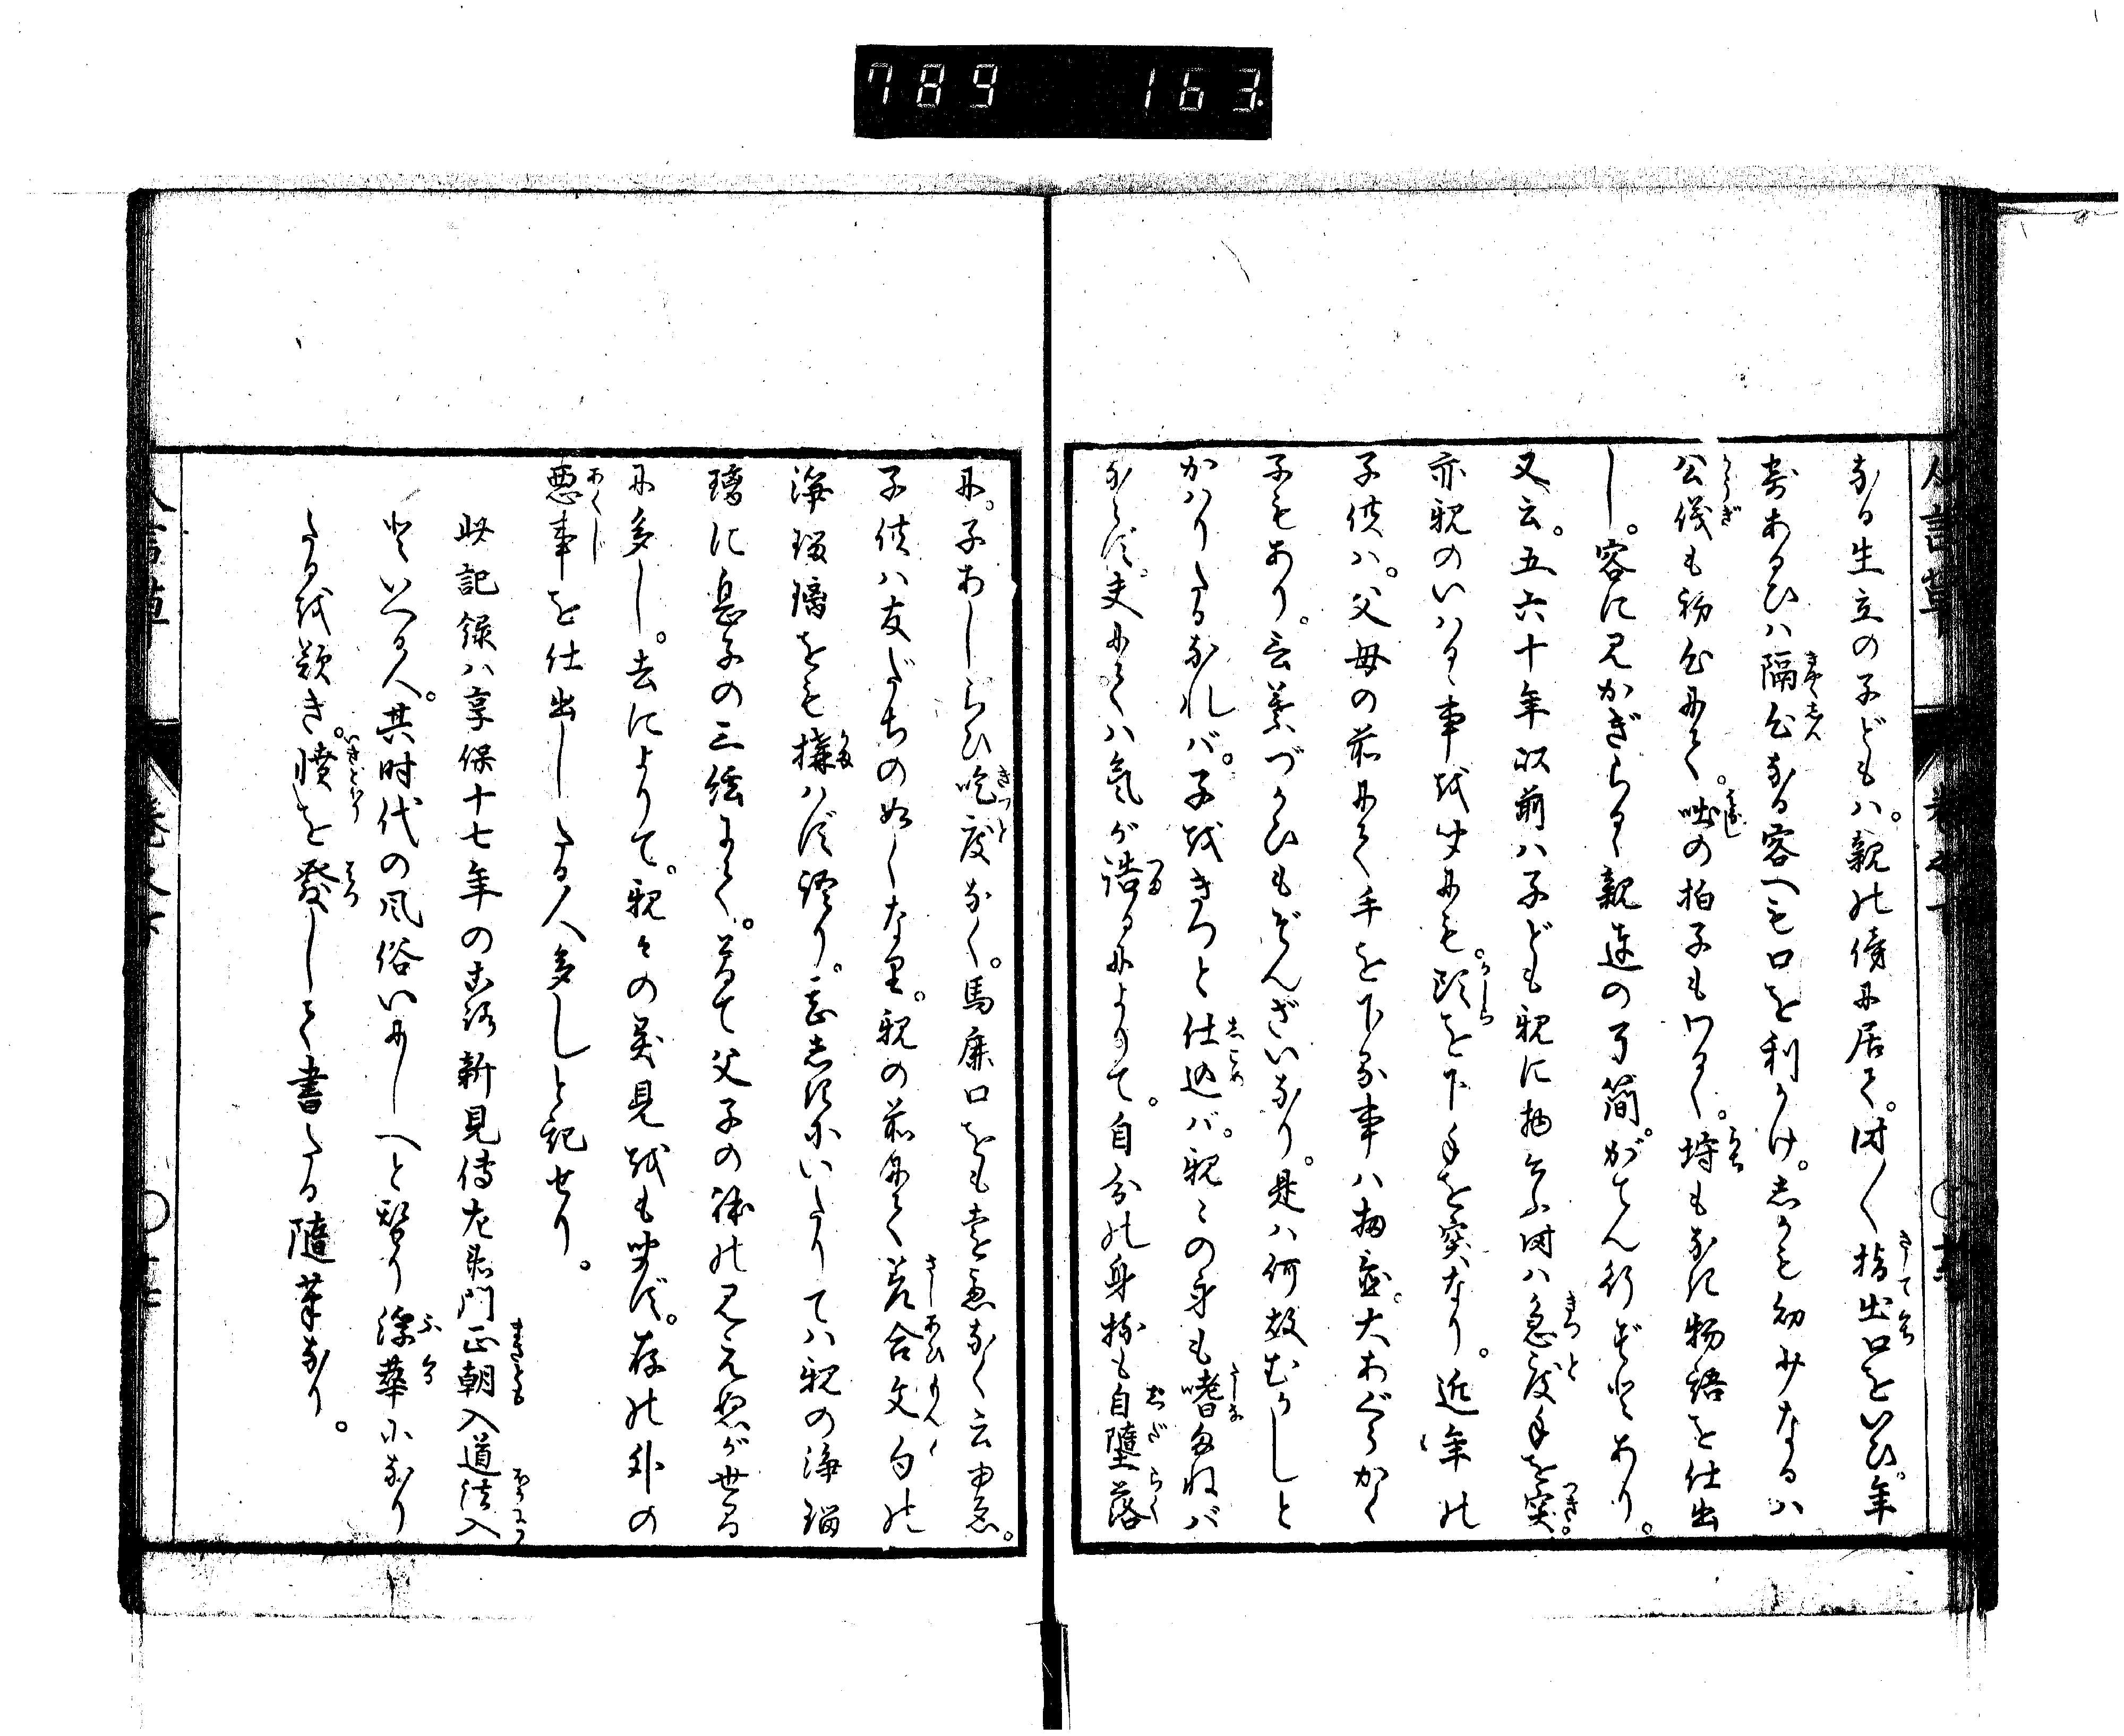 789 163
なる生立の子どもハ。親の傍に居て。时〳〵指出口をいひ。年
寄あるひハ隔心なる客へも口を利かけ。しかも幼少なるハ
公儀も初心にて。咄の拍子もわるく。埒もなき物語を仕出
し。客に見かぎらるゝ親達の了簡。がてん行ずとあり。
又云。五六十年以前ハ子ども親に物云ふ时ハ急度手を突。
亦親のいハるゝ事を聞にも。頭を下手を突なり。近年の
子供ハ。父母の前にて手を下る事ハ扨置。大あぐらかく
子もあり。言葉づかひもぞんざいなり。是ハ何故むかしと
かハりたるなれバ。子をきつと仕込バ。親〻の身も嗜まねバ
ならず。夫にてハ気が詰るによりて。自分の身持も自墮落
に。子あしらひ吃度なく。馬鹿口をも遠慮なく云ゆゑ。
子供ハ友だちの如くなり。親の前にて差合文句の
浄瑠璃をも構ハず語り。甚しきにいたりてハ親の浄瑠
璃に息子の三絃にて。曽て父子の禮の見え
に多し。去によりて。親々の異見をも聞ず。存の外の
悪事を仕出したる人多しと記せり。
此記録ハ享保十七年の古話新見傳左衛門正朝入道法入
といへる人。其时代の风俗いにしへと替り浮華になり
たるを歎き。憤を發して書たる隨筆なり。